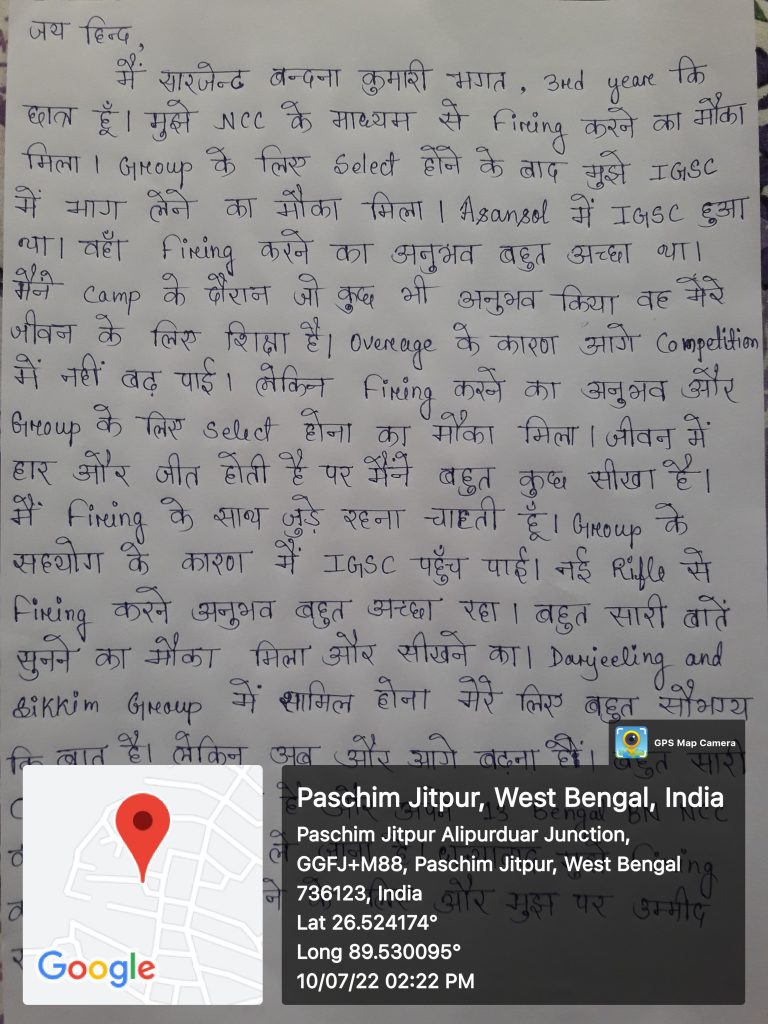 जय हिन्द,
मैं सारजेन्ट बन्दना कुमारी भगत, 3rd year कि
छात्र हूँ। मुझे NCC के माध्यम से Firing करने का मौका
मिला। Group के लिए Select होने के बाद मुझे IGSC
में भाग लेने का मौका मिला। Asansol में IGSC हुआ
था। वहाँ Firing करने का अनुभव बहुत अच्छा था।
मैंने Camp के दौरान जो कुछ भी अनुभव किया वह मेरे
जीवन के लिए शिक्षा है। Overage के कारण आगे Competition
में नहीं बढ़ पाई। लेकिन Firing करने का अनुभव और
Group के लिए Select होना का मौका मिला। जीवन में
हार और जीत होती है पर मैंने बहुत कुछ सीखा है।
मैं Firing के साथ जुड़े रहना चाहती हूँ। Group के
सहयोग के कारण मैं IGSC पहुँच पाई। नई Rifle से
Firing करने अनुभव बहुत अच्छा रहा। बहुत सारी बातें
सुनने का मौका मिला और सीखने का। Darjeeling and
Sikkim Group में शामिल होना मेरे लिए बहुत सौभग्य
कि बात है। लेकिन अब और आगे बढ़ना है। बहुत सारी
और अपने 13 Bengal BN NCC
ले जाना है। मुझे Firing
ने के लिए और मुझ पर उम्मीद
GPS Map Camera
Google
Paschim Jitpur, West Bengal, India
Paschim Jitpur Alipurduar Junction,
GGFJ+M88, Paschim Jitpur, West Bengal
736123, India
Lat 26.524174°
Long 89.530095°
10/07/22 02:22 PM